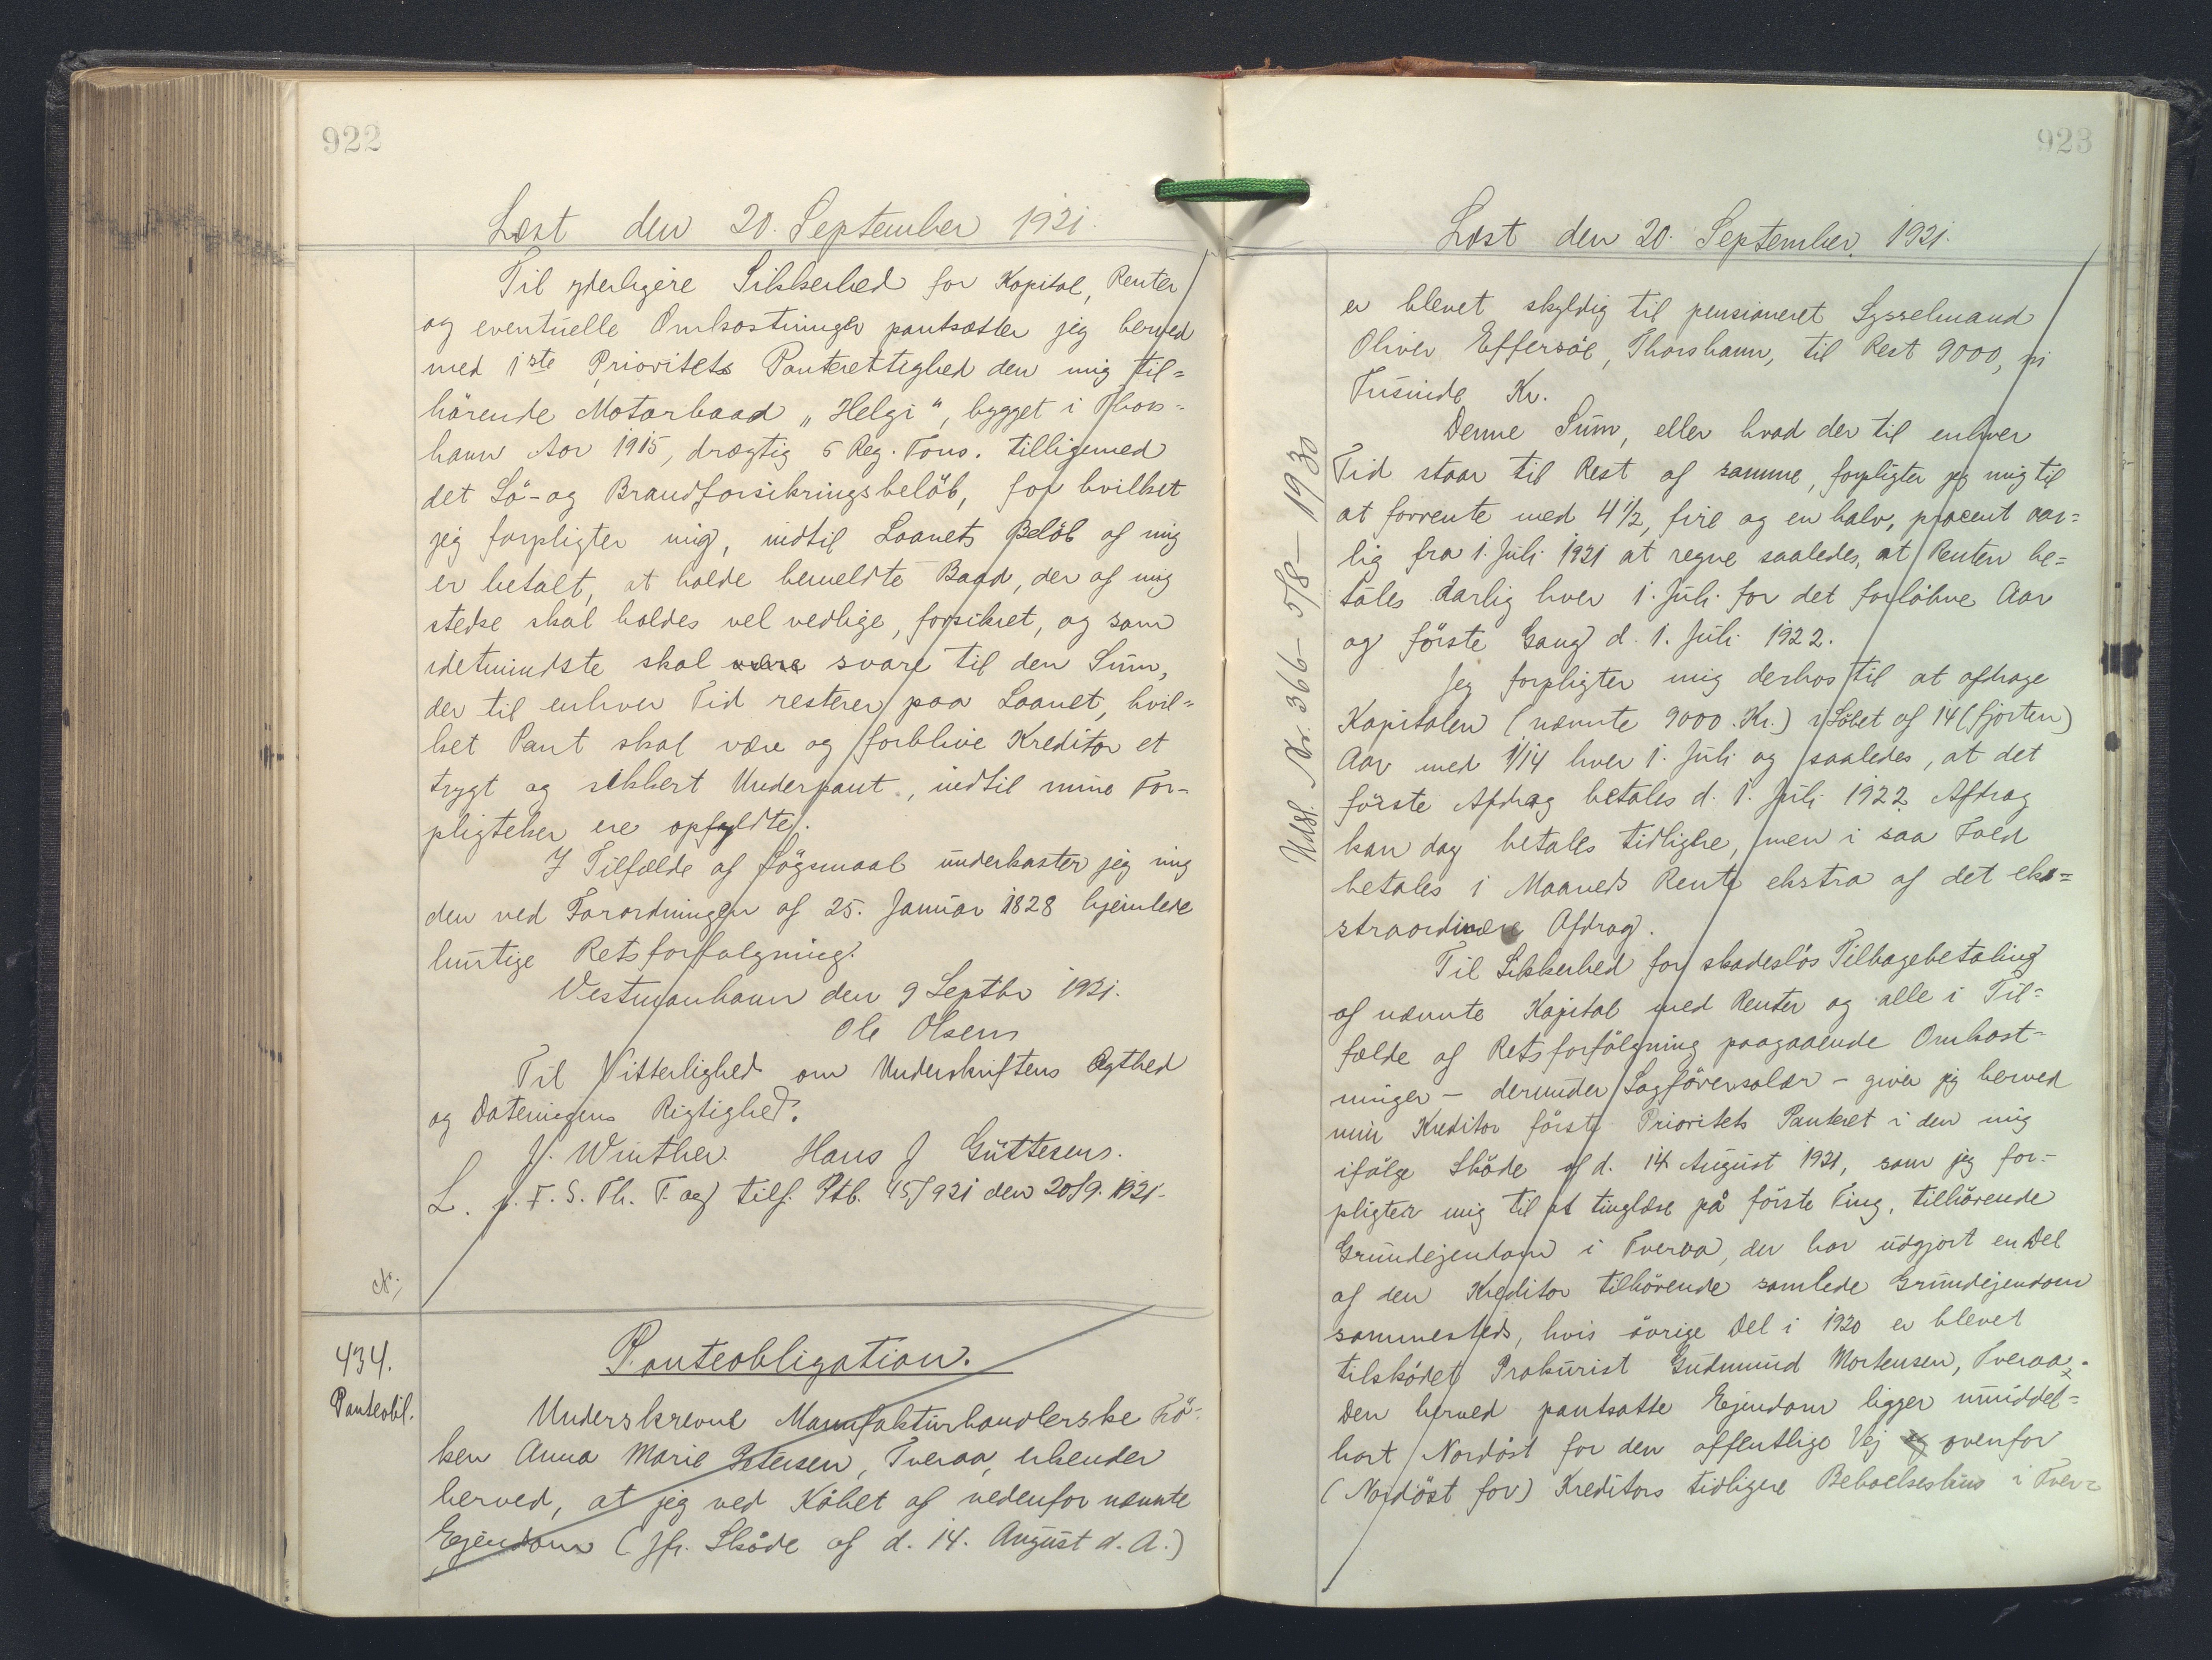 922
Læst den 20. September 1921.
Til yderligere Sikkerhed for Kapital, Renter
og eventuelle Omkostninger pantsætter jeg herved
med 1ste Prioritets Panterettighed den mig til=
hörende Motorbaad „Helgi“, bygget i Thors-
havn Aar 1915, drægtig 6 Reg. Tons. tilligemed
det Sö- og Brandforsikringsbelöb, for hvilket
jeg forpligter mig, indtil Laanets Belöb af mig
er betalt, at holde bemeldte Baad, der af mig
stedse skal holdes vel vedlige, forsikret, og som
idetmindste skal være svare til den Sum,
der til enhver Tid resterer paa Laanet, hvil=
ket Pant skal være og forblive Kreditor et
trygt og sikkert Underpant, indtil mine For-
pligtelser ere opfyldte.
I Tilfælde af Sögsmaal underkaster jeg mig
den ved Forordningen af 25. Januar 1828 hjemlede
hurtige Retsforfølgning.
Vestmanhavn den 9 Septbr 1921.
Ole Olsen
Til Vitterlighed om Underskriftens Ægthed
og Dateringens Rigtighed.
J. Winther. Hans J Güttesen.
L. p. T. S. Th. T. og tilf. Ptb. 45/921 den 20/9. 1921.
434.
Panteobl.
Panteobligation.
Underskrevne Manufakturhandlerske Frö-
ken Anna Marie Petersen, Tveraa, erkender
herved, at jeg ved Köbet af nedenfor nævnte
Ejendom (jfr. Sköde af d. 14. August d. A.)
923
Læst den 20. September 1921.
er blevet skyldig til pensioneret Sysselmand
Oliver Effersöe, Thorshavn, til Rest 9000, ni
Tusinde Kr.
Denne Sum, eller hvad der til enhver
Tid staar til Rest af samme, forpligter jeg mig til
at forrente med 4 1/2, fire og en halv, procent aar=
lig fra 1. Juli 1921 at regne saaledes, at Renten be=
tales aarlig hver 1. Juli for det forløbne Aar
og förste Gang d. 1. Juli 1922.
Jeg forpligter mig derhos til at afdrage
Kapitalen (nævnte 9000 Kr.) i Löbet af 14 (fjorten)
Aar med 1/14 hver 1. Juli og saaledes, at det
förste Afdrag betales d. 1. Juli 1922 Afdrag
kan dog betales tidligere, men i saa Fald
betales i Maaneds Rente ekstra af det eks=
straordinære Afdrag.
Til Sikkerhed for skadeslös Tilbagebetaling
af nævnte Kapital med Renter og alle i Til=
fælde af Retsforfölgning paagaaende Omkost-
ninger - derunder Sagförersalær - giver jeg herved
min Kreditor förste Prioritets Panteret i den mig
ifølge Sköde af d. 14 August 1921, som jeg for-
pligter mig til at tinglæse på förste Ting, tilhörende
Grundejendom i Tveraa, der har udgjort en Del
af den Kreditor tilhörende samlede Grundejendom
sammesteds, hvis övrige Del i 1920 er blevet
tilsködet Prokurist Gudmund Mortensen, Tveraa.
Den herved pantsatte Ejendom ligger umiddel=
bart Nordöst for den offentlige Vej og ovenfor
(Nordöst for) Kreditors tidligere Beboelseshus i Tver=
Udsl. Nr. 366 - 5/8 - 1930